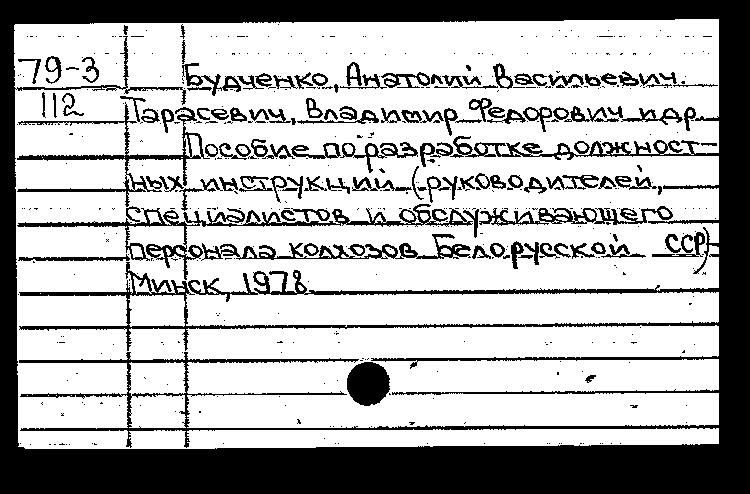 79-3 Будченко, Анатолий Васильевич.
112 Тарасевич, Владимир Федорович и др.
Пособие по разработке должност-
ных инструкций (руководителей,
специалистов и обслуживающего
персонала колхозов Белорусской ССР)-
Минск, 1978.